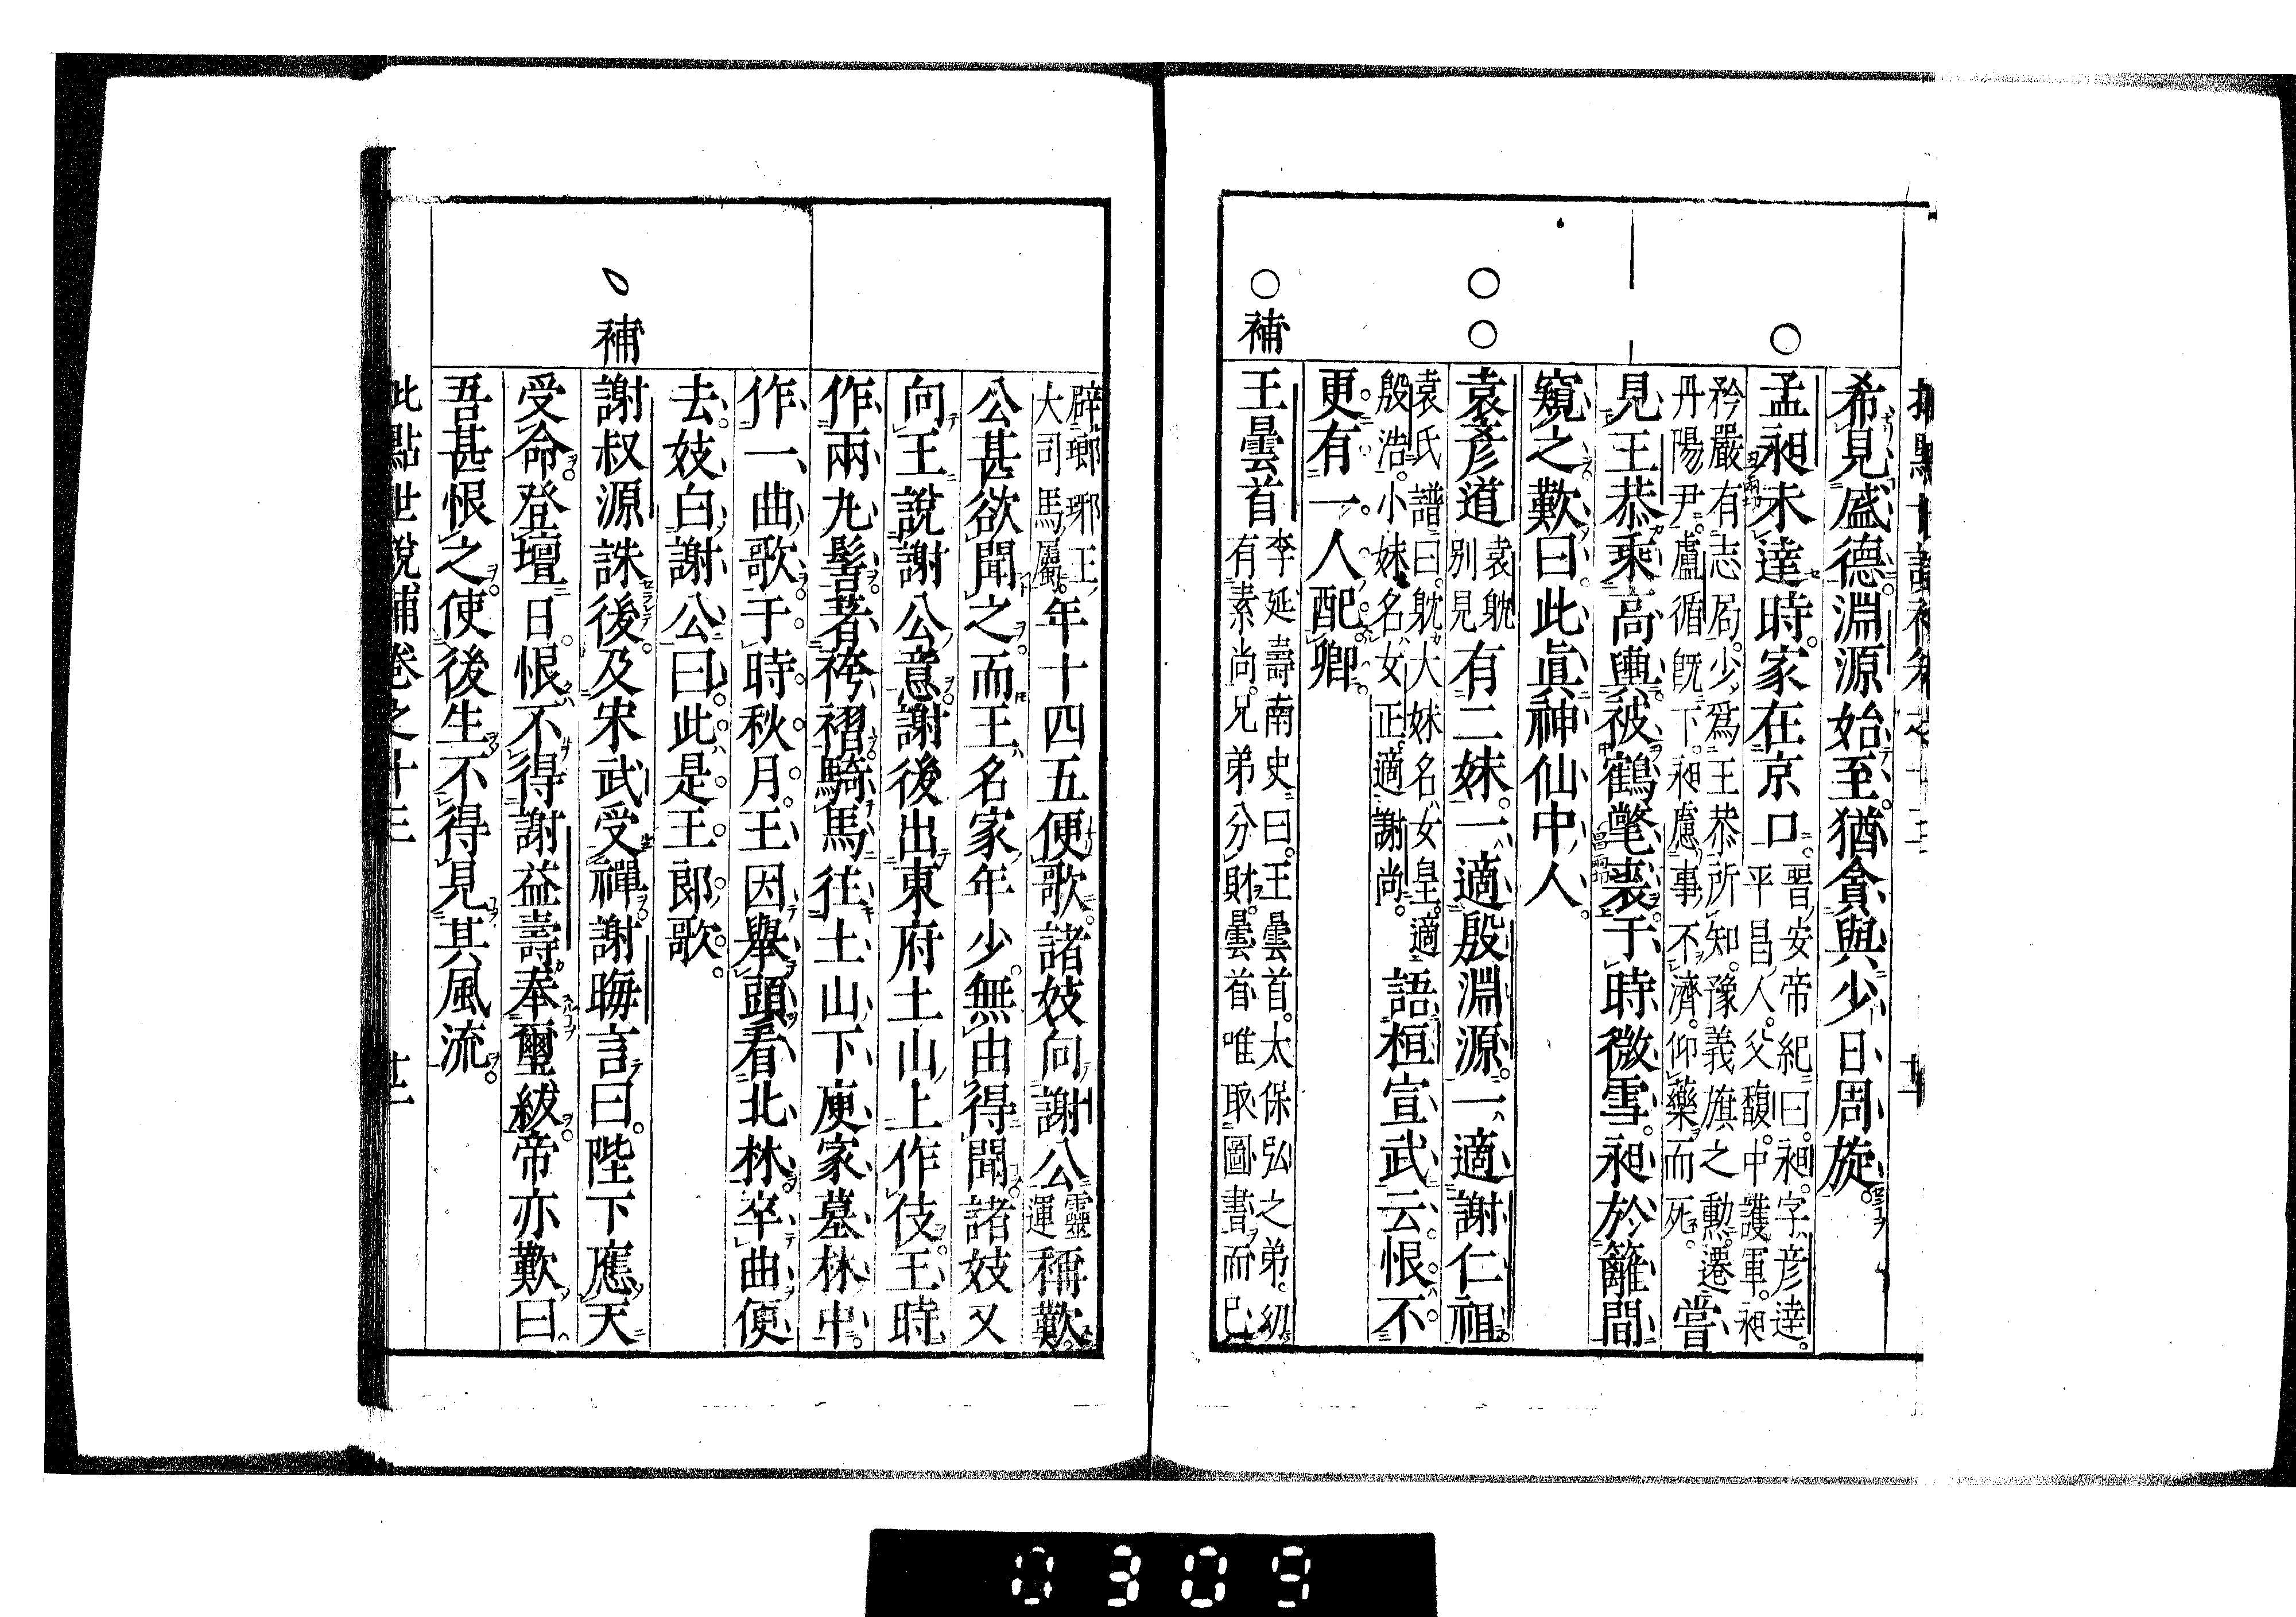 希見盛德淵源始至猶貪與少日周旋
孟昶未達時家在京口晉安帝紀曰昶字彥達
平昌人父馥中護軍昶
矜嚴有志局少爲王恭所知豫義旗之勳遷
丹陽尹盧循既下昶慮事不濟仰藥而死嘗
見王恭乘高輿被鶴氅裘于時微雪昶於籬間
窺之歎曰此眞神仙中人
袁彥道袁躭
別見有二妹一適殷淵源一適謝仁祖
袁氏譜曰躭大妹名女皇適
殷浩小妹名女正適謝尚語桓宣武云恨不
更有一人配卿
補
王曇首李延壽南史曰王曇首太保弘之弟幼
有素尚兄弟分財曇首唯取圖書而已
辟瑯琊王
大司馬屬年十四五便歌諸妓向謝公靈
運稱歎
公甚欲聞之而王名家年少無由得聞諸妓又
向王說謝公意謝後出東府土山上作伎王時
作兩丸髻著袴褶騎馬往土山下庾家墓林中
作一曲歌于時秋月王因舉頭看北林卒曲便
去妓白謝公曰此是王郎歌
補
謝叔源誅後及宋武受禪謝晦言曰陛下應天
受命登壇日恨不得謝益壽奉璽紱帝亦歎曰
吾甚恨之使後生不得見其風流
點世說補卷之十三
0309